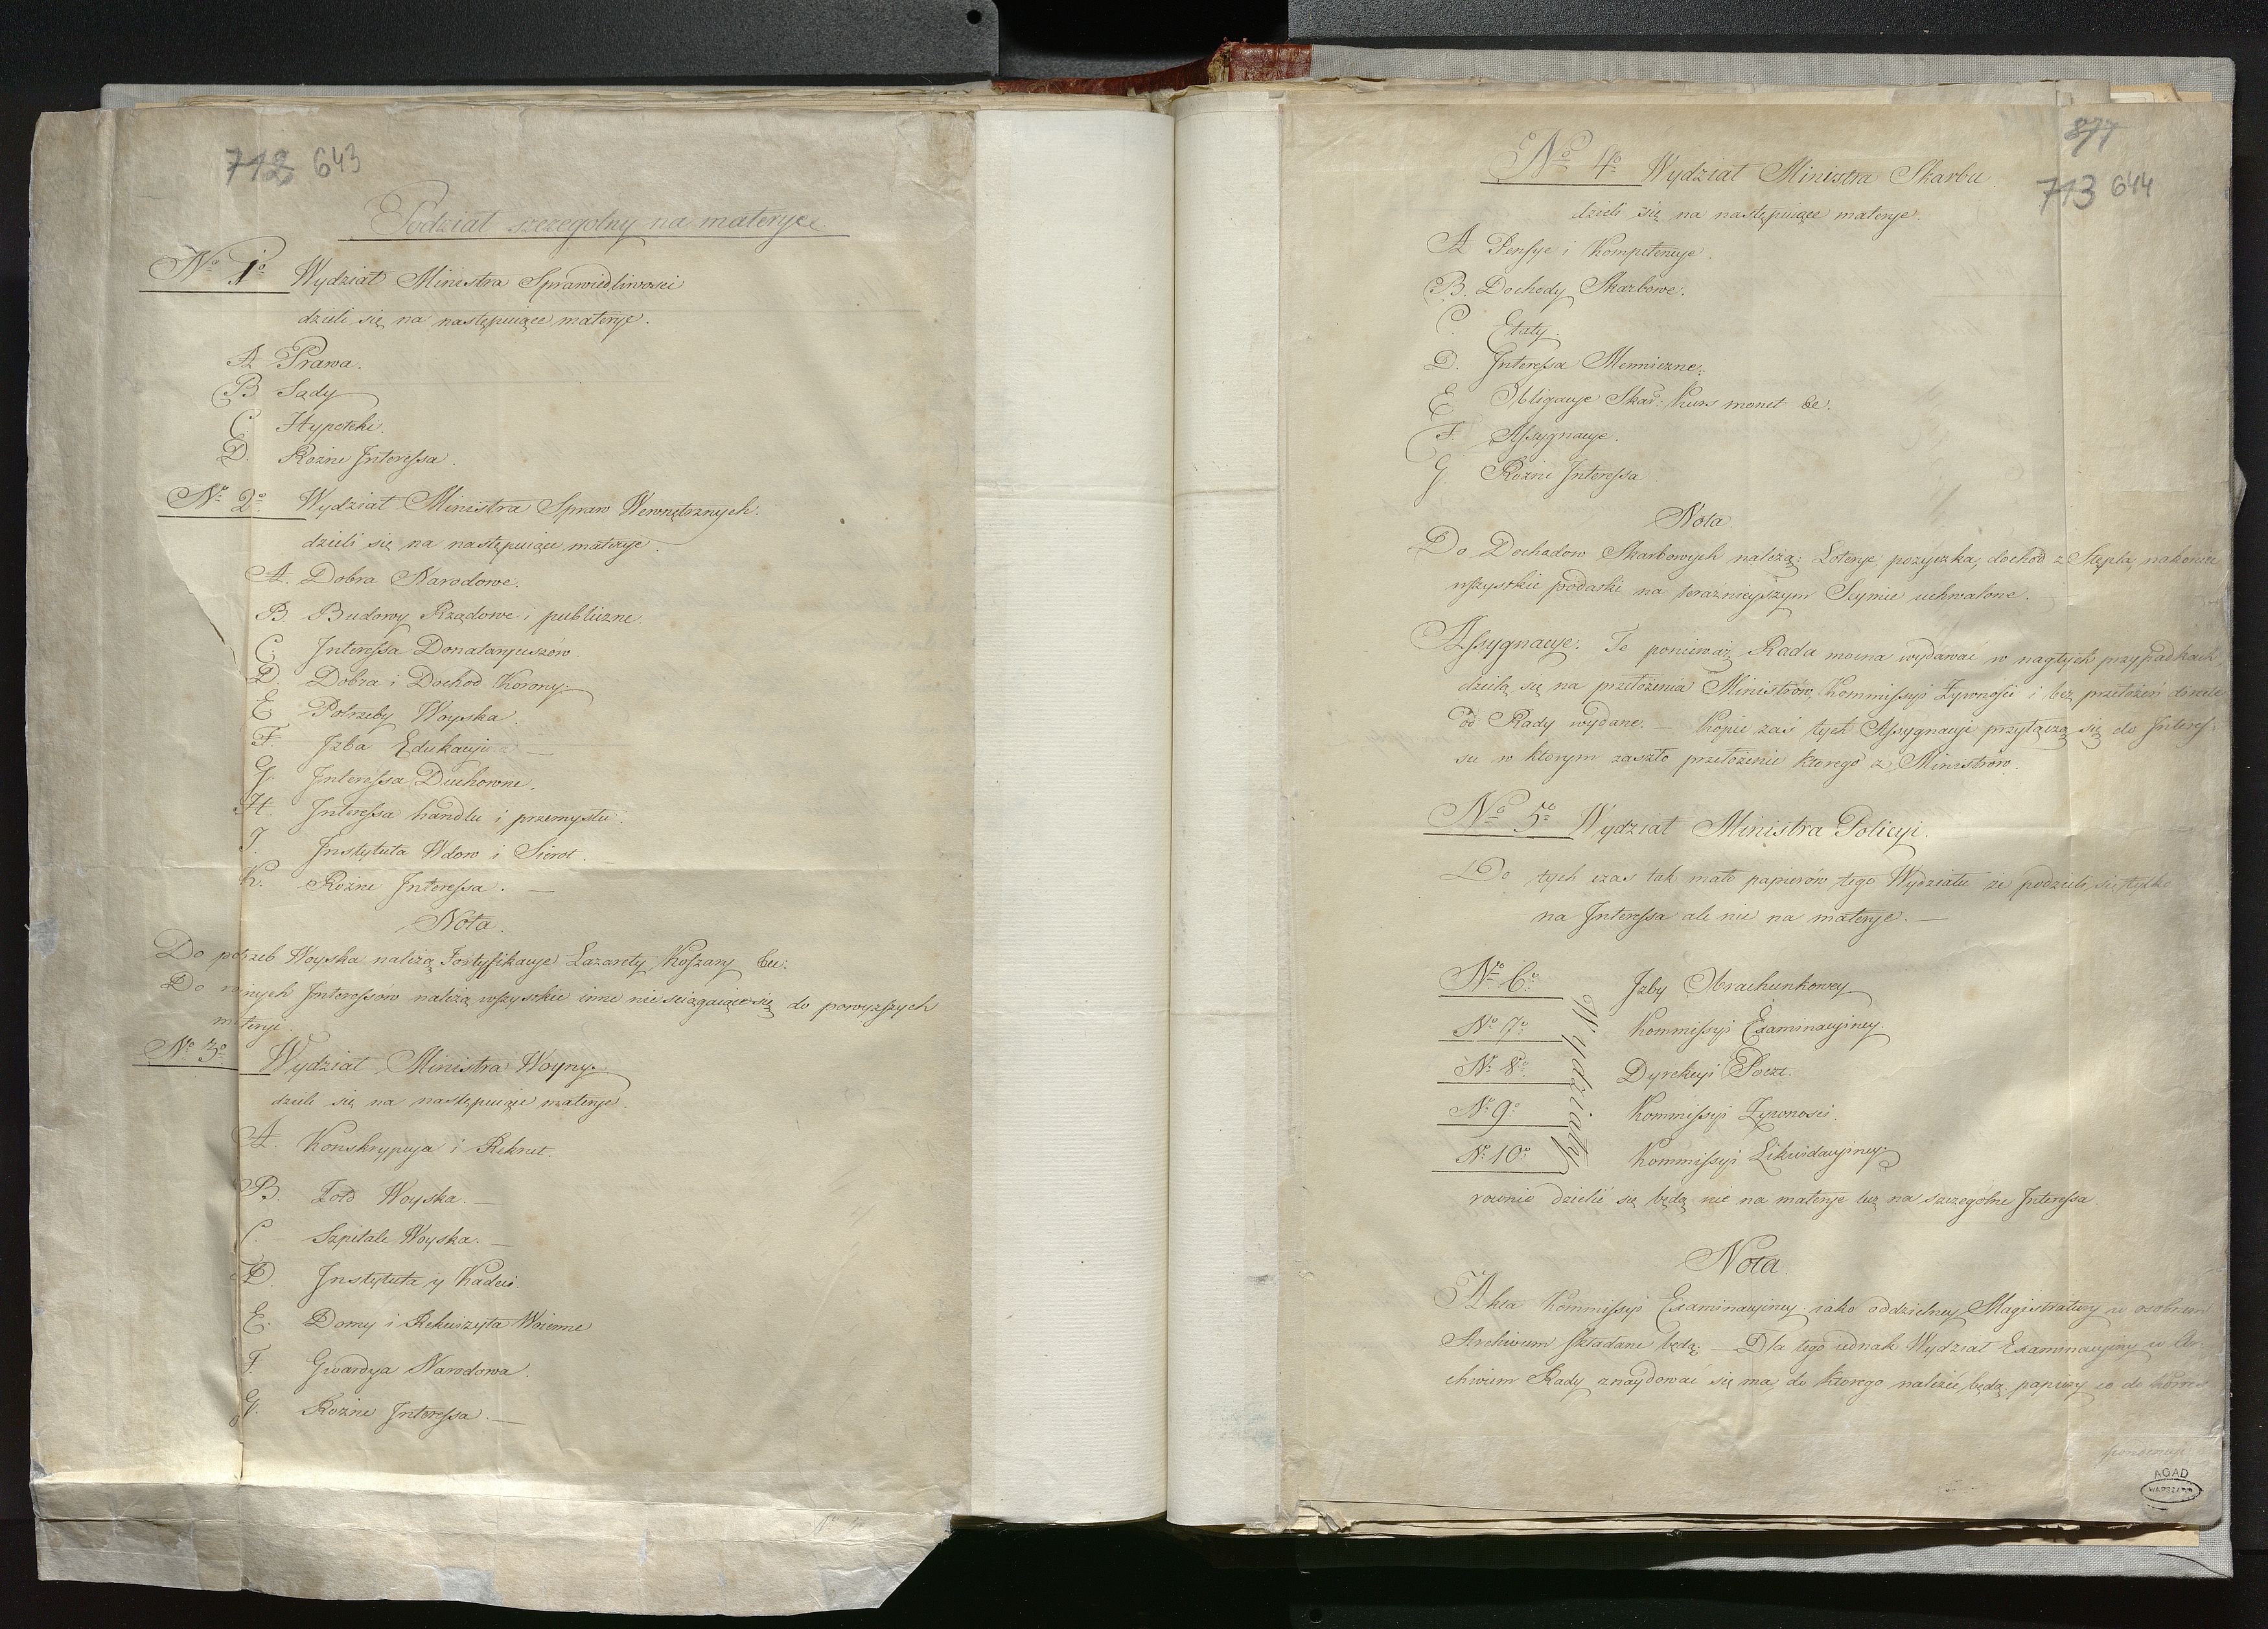 712 643
Podział szczegolny na materyje
No 1o Wydział Ministra Sprawiedliwosci
dzieli się na następuiące materye.
A Prawa.
B Sądy
C. Hypoteki.
D. Rożne Interessa.
No 2o Wydział Ministra Spraw Wewnętrznych.
dzieli się na następuiące materye.
A. Dobra Narodowe.
B. Budowy Rządowe i publiczne.
C. Interessa Donataryuszów.
D. Dobra i Dochod Korony.
E. Potrzeby Woyska.
F. Izba Edukacyi —
G. Interessa Duchowne.
H. Interessa handlu i przemysłu.
I. Instytuta Wdow i Sierot.
K. Rożne Interessa. —
Nota.
Do potrzeb Woyska należą Fortyfikacye Lazarety, Koszary &c:
Do roznych Interessów należą wszystkie inne nie sciągaiące się do powyzszych
materyi.
No 3o Wydział Ministra Woyny.
dzieli się na następuiące materye.
A. Konskrypcya i Rekrut.
B. Zołd Woyska. —
C. Szpitale Woyska. —
D. Instytuta y Kadeci.
E. Domy i Rekwizyta Woienne
F. Gwardya Narodowa.
G. Rożne Interessa. —
877
713 644
No 4o Wydział Ministra Skarbu
dzieli się na następuiące materye.
A Pensye i Kompetencye.
B. Dochody Skarbowe.
C. Etaty.
D. Interessa Menniczne.
E. Obligacye Skar: Kurs monet &c.
F. Assygnacye.
G. Rożne Interessa
Nota.
Do Dochodow Skarbowych należą: Loterye, pożyczka, dochod z Stępla, nakoniec
wszystkie podatki na teraznieyszym Seymie uchwalone.
Assygnacye. Te ponieważ Rada mocna wydawac w nagłych przypadkach
dzielą się na przełożenia Ministrów, Kommissyi Żywności i bez przełożeń
od Rady wydane. — Kopie zaś tych Assygnacyi przyłączą się do Interes-
su w ktorym zaszło przełożenie ktorego z Ministrów.
No 5o Wydział Ministra Policyi.
Do tych czas tak mało papierów tego Wydziału że podzieli się tylko
na Interessa ale nie na materye. —
Wydziały
No 6o Izby Obrachunkowey
No 7o Kommissyi Examinacyiney.
No 8o Dyrekcyi Poczt.
No 9o Kommissyi Żywnosci.
No 10o Kommissyi Likwidacyiney
rownie dzielić się będą nie na materye lecz na szczególne Interessa.
Nota.
Akta Kommissyi Examinacyiney iako oddzielney Magistratury w osobnem
Archiwum składane będą. — Dla tego iednak Wydział Examinacyiny w Ar-
chiwum Rady znaydować się ma, do ktorego należeć będą papiery co do Korres
pondencyi
AGAD
WARSZAWA